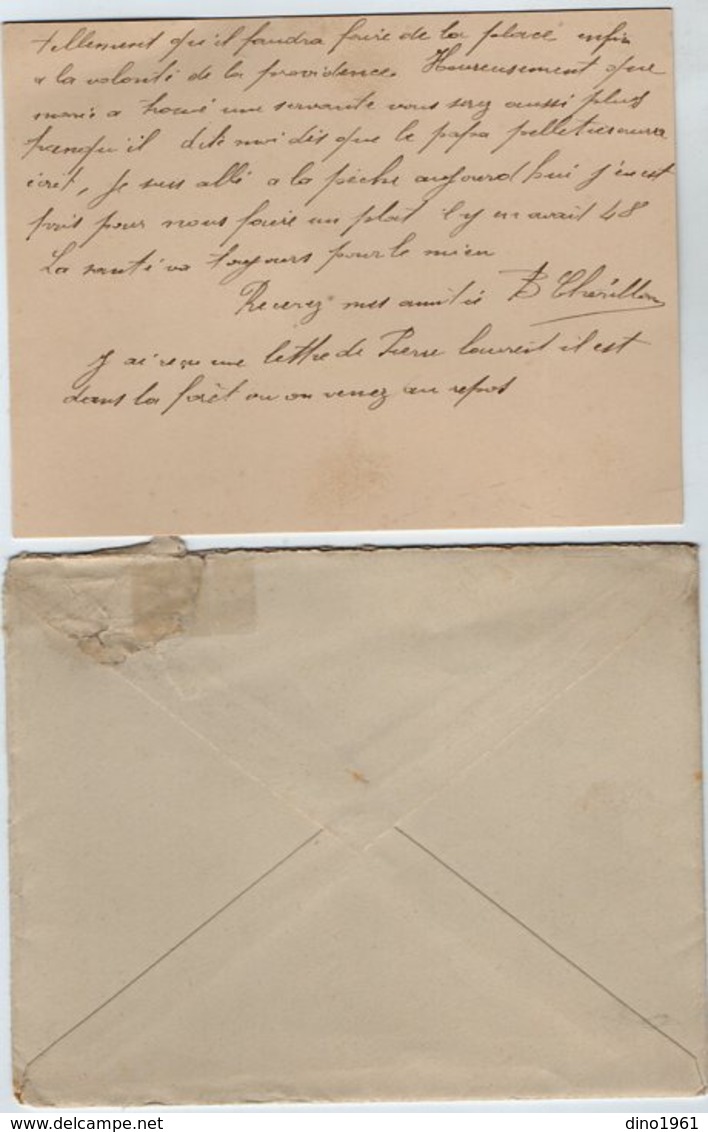 tellement qu'il faudra faire de la place enfin
a la volonté de la providence. Heureusement que
marie a trouvé une servante vous serez aussi plus
tranqu'il dite moi dés que le papa pelletier aura
écrit, Je suis allé a la pèche aujourd'hui j'en est
pris pour nous faire un plat il y en avait 48
La santé va toujours pour le mieu
Recevez mes amitié B Thérillon
J ai reçu une lettre de Pierre laurent il est
dans la forêt ou on venez au repos
delcampe.net
dino1961